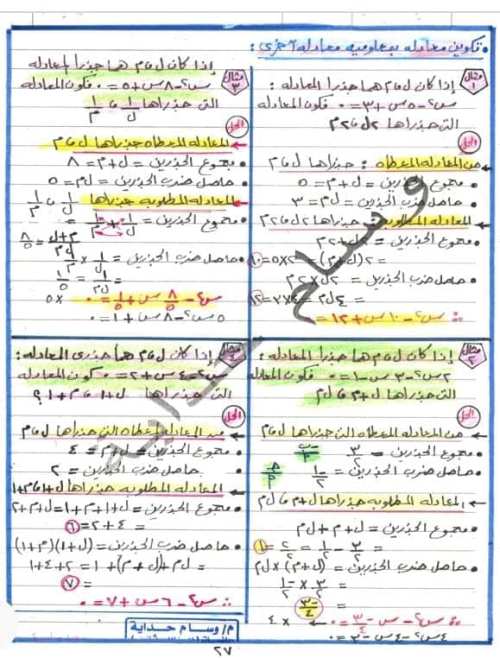 تكوين معادلة بمعلومية معادلة أخرى :
مثال ١
إذا كان ل ، م هما جذرا المعادلة :
س٢ - ٥س + ٣ = ٠ فكون المعادلة
التى جذراها ٢ل ، ٢م
الحل
من المعادلة المعطاة : جذراها ل ، م
مجموع الجذرين = ل + م = ٥
حاصل ضرب الجذرين = ل م = ٣
المعادلة المطلوبة جذراها ٢ل ، ٢م
مجموع الجذرين = ٢ل + ٢م
= ٢(ل + م) = ٢×٥ = ١٠
حاصل ضرب الجذرين = ٢ل × ٢م
= ٤ل م = ٤×٣ = ١٢
∴ س٢ - ١٠س + ١٢ = ٠
مثال ٣
إذا كان ل ، م هما جذرا المعادلة
س٢ - ٨س + ٥ = ٠ فكون المعادلة
التى جذراها ١/ل ، ١/م
الحل
المعادلة المعطاة جذراها ل ، م
مجموع الجذرين = ل + م = ٨
حاصل ضرب الجذرين = ل م = ٥
المعادلة المطلوبة جذراها ١/ل ، ١/م
مجموع الجذرين = ١/ل + ١/م =
= (ل + م)/(ل م) = ٨/٥
حاصل ضرب الجذرين = ١/ل × ١/م
= ١/(ل م) = ١/٥
س٢ - ٨/٥ س + ١/٥ = ٠ ×٥
٥س٢ - ٨س + ١ = ٠
مثال ٢
إذا كان ل ، م هما جذرا المعادلة :
٢س٢ - ٣س - ١ = ٠ فكون المعادلة
التى جذراها ل + م ، ل م
الحل
من المعادلة المعطاة التى جذراها ل ، م
مجموع الجذرين = ٣/٢
حاصل ضرب الجذرين = -١/٢
المعادلة المطلوبة جذراها ل + م ، ل م
مجموع الجذرين = ل + م + ل م
= ٣/٢ - ١/٢ = ٢/٢ = ١
حاصل ضرب الجذرين = (ل + م) × ل م
= ٣/٢ × -١/٢
= -٣/٤
∴ س٢ - س - ٣/٤ = ٠ × ٤
٤س٢ - ٤س - ٣ = ٠
مثال ٤
إذا كان ل ، م هما جذرى المعادلة :
س٢ - ٤س + ٢ = ٠ كون المعادلة
التى جذراها ل + ١ ، م + ١ ؟
الحل
من المعادلة المعطاة التى جذراها ل ، م
مجموع الجذرين = ل + م = ٤
حاصل ضرب الجذرين = ٢
المعادلة المطلوبة جذراها ل + ١ ، م + ١
مجموع الجذرين = ل + ١ + م + ١ = ل + م + ٢
= ٤ + ٢ = ٦
حاصل ضرب الجذرين = (ل + ١)(م + ١)
= ل م + (ل + م) + ١ = ٢ + ٤ + ١
= ٧
∴ س٢ - ٦س + ٧ = ٠
م/ وسام حداية
٢٧
وسام حداية